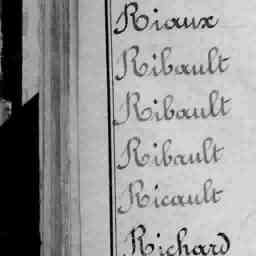 Riaux
Ribault
Ribault
Ribault
Ricault
Richard